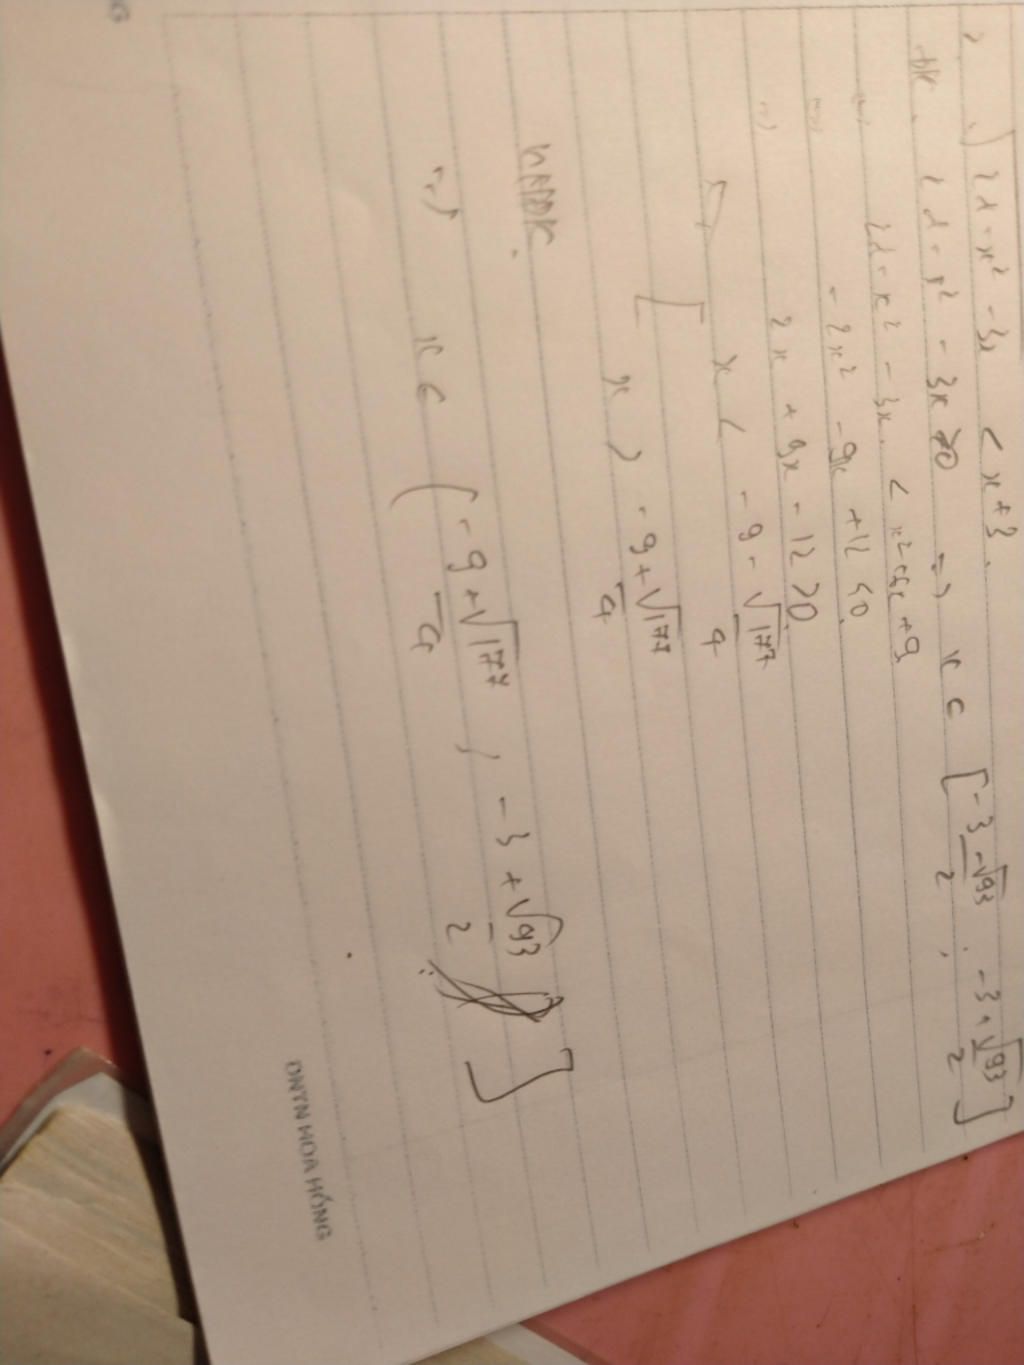 21 - x² - 3x < x + 3.
ĐK. 21 - x² - 3x ≥ 0 => x ∈ [ -3 - √93 / 2 ; -3 + √93 / 2 ]
21 - x² - 3x < x² + 6x + 9
- 2x² - 9x + 12 < 0
2x + 9x - 12 > 0
x < -9 - √177 / 4
x > -9 + √177 / 4
x ∈ ( -9 + √177 / 4 ; -3 + √93 / 2 ]
DNTN HOA HỒNG